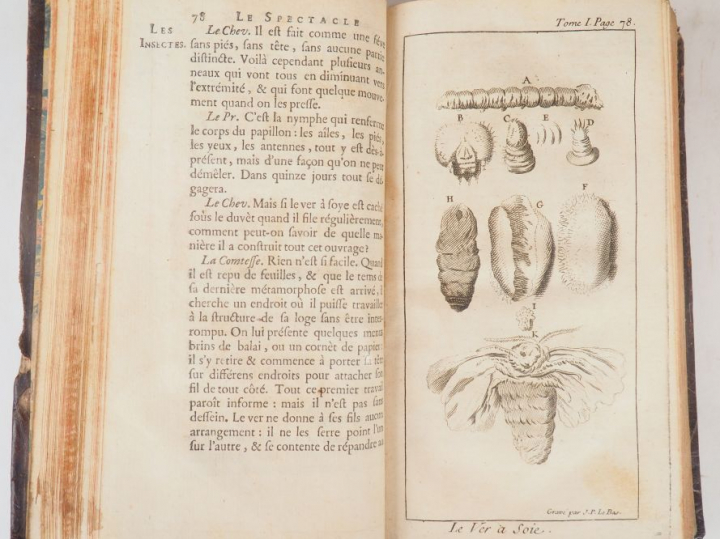 78 LE SPECTACLE
LES
INSECTES.
Le Chev. Il est fait comme une féve
sans piés, sans tête, sans aucune partie
distincte. Voilà cependant plusieurs an-
neaux qui vont tous en diminuant vers
l'extrémité, & qui font quelque mouve-
ment quand on les presse.
Le Pr. C'est la nymphe qui renferme
le corps du papillon : les aîles, les piés,
les yeux, les antennes, tout y est dès-à-
présent, mais d'une façon qu'on ne peut
démêler. Dans quinze jours tout se dé-
gagera.
Le Chev. Mais si le ver à soye est caché
sous le duvèt quand il file réguliérement,
comment peut-on savoir de quelle ma-
nière il a construit tout cet ouvrage ?
La Comtesse. Rien n'est si facile. Quand
il est repu de feuilles, & que le tems de
sa dernière métamorphose est arrivé, il
cherche un endroit où il puisse travailler
à la structure de sa loge sans être inter-
rompu. On lui présente quelques menus
brins de balai, ou un cornèt de papier :
il s'y retire & commence à porter la tête
sur différens endroits pour attacher son
fil de tout côté. Tout ce premier travail
paroît informe : mais il n'est pas sans
dessein. Le ver ne donne à ses fils aucun
arrangement : il ne les serre point l'un
sur l'autre, & se contente de répandre au
Tome I. Page 78.
A
B C E D
H G F
I
K
Gravé par J.P. Le Bas.
Le Ver à Soie.